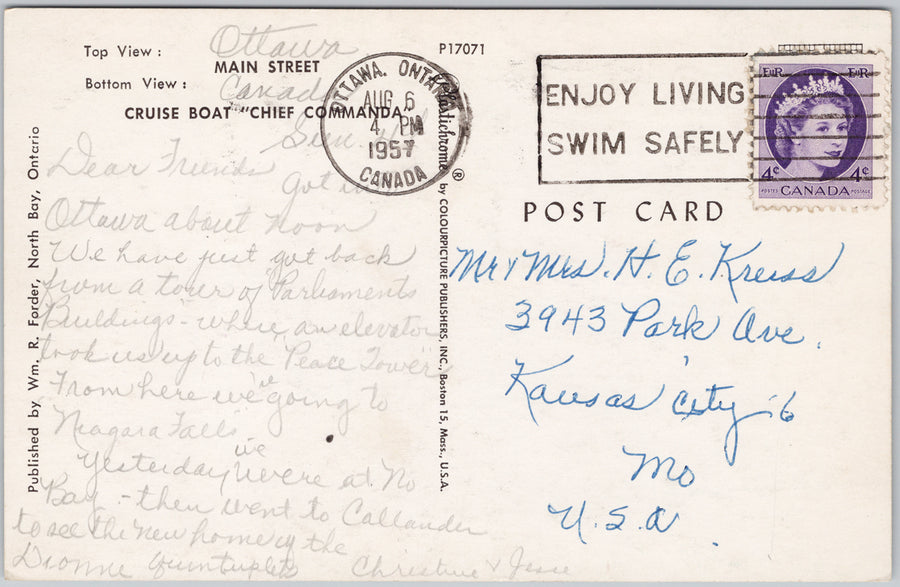 Top View :
Ottawa
MAIN STREET
Bottom View :
Canada
CRUISE BOAT "CHIEF COMMANDA"
Sun.
Dear Friends
Got in
Ottawa about noon
We have just got back
from a tour of Parliaments
Buildings - where an elevator
took us up to the "Peace Tower"
From here we're going to
Niagara Falls
Yesterday we were at No
Bay - then went to Callander
to see the new home of the
Dionne Quintuplets
Christine & Jesse
Published by Wm. R. Forder, North Bay, Ontario
P17071
Plastichrome ® by COLOURPICTURE PUBLISHERS, INC., Boston 15, Mass., U.S.A.
OTTAWA, ONTARIO
AUG 6
4 PM
1957
CANADA
ENJOY LIVING
SWIM SAFELY
EIIR EIIR
4¢ 4¢
POSTES CANADA POSTAGE
POST CARD
Mr & Mrs. H. E. Kreiss
3943 Park Ave.
Kansas City 16
Mo
U.S.A